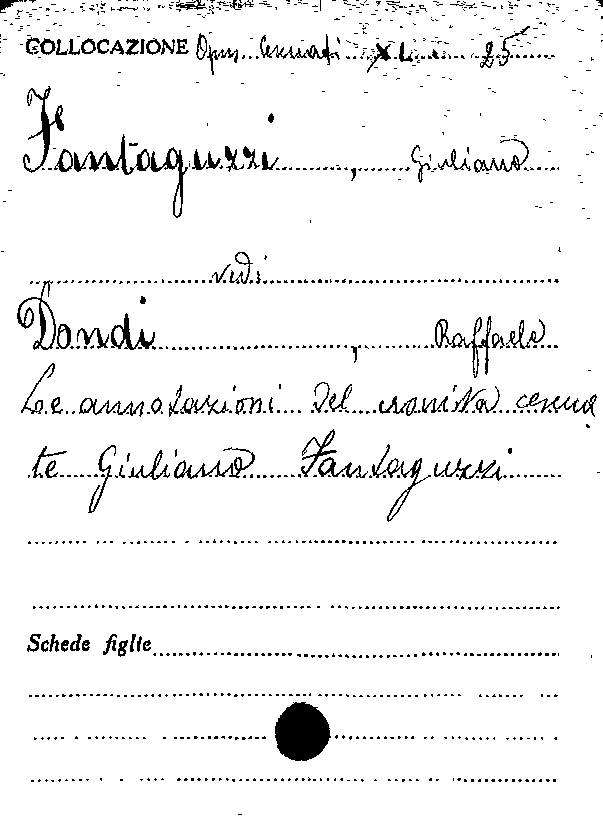 COLLOCAZIONE Opus. Cesenati XL. 25
Fantaguzzi, Giuliano
vedi
Dondi, Raffaele
Le annotazioni del cronista cesena
te Giuliano Fantaguzzi
Schede figlie